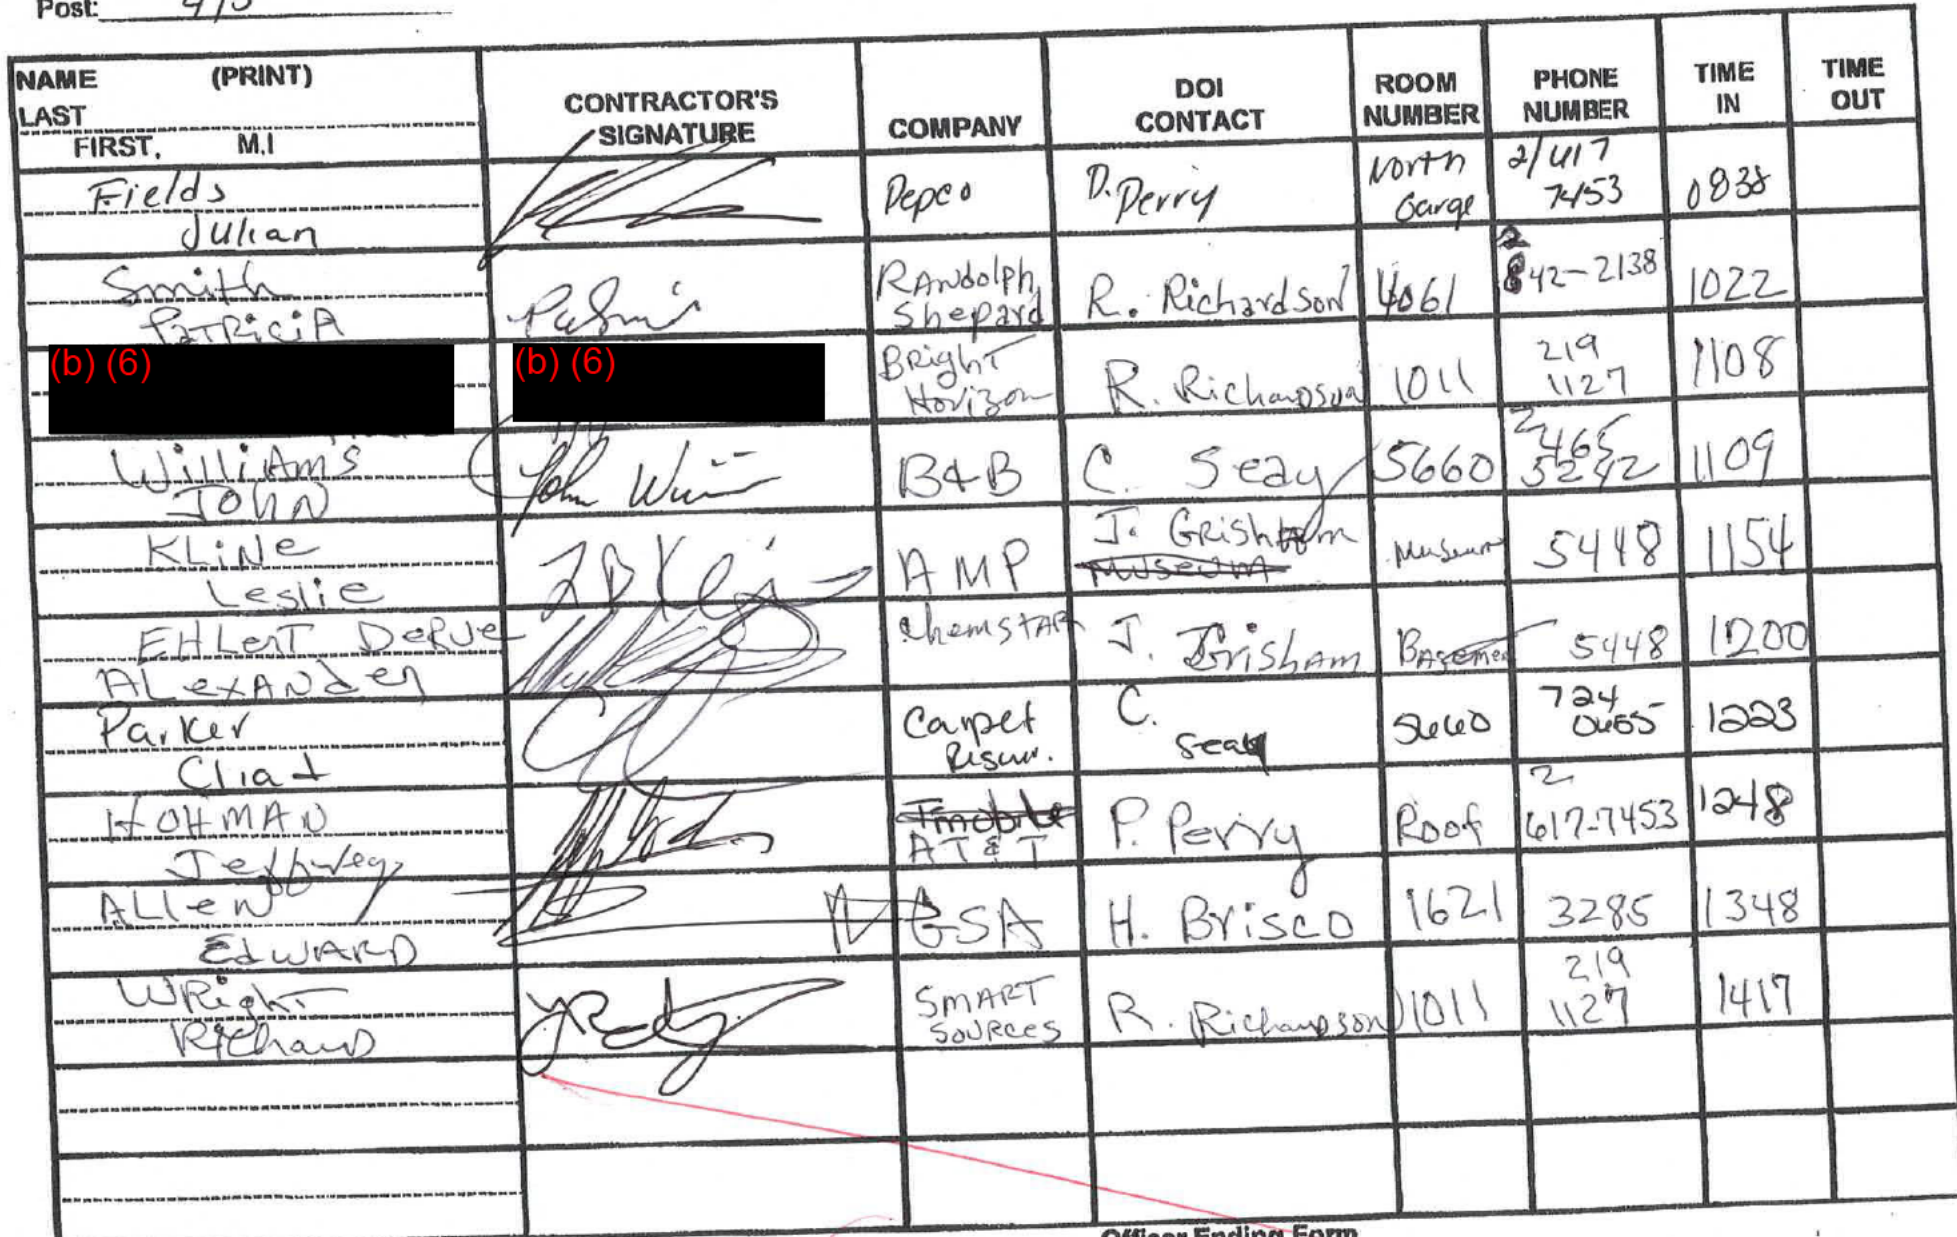 Post: 4/5
NAME (PRINT)
LAST
FIRST, M.I
CONTRACTOR'S
SIGNATURE
COMPANY
DOI
CONTACT
ROOM
NUMBER
PHONE
NUMBER
TIME
IN
TIME
OUT
Fields
Julian
Pepco
D. Perry
North
Garge
2/617
7453
0838
Smith
PATRICIA
RANdolph
Shepard
R. Richardson
4061
2
842-2138
1022
(b) (6)
(b) (6)
BRight
Horizon
R. Richardson
1011
219
1127
1108
WilliAMS
JOHN
John
B&B
C. Seay
5660
2
465
5242
1109
KLiNe
Leslie
AMP
J. GRISHAm
Museum
Museum
5448
1154
EHLerT DeRUe
ALexANder
ChemstAR
J. GrishAm
Basemen
5448
1200
Parker
Carpet
C.
Seay
5660
724
0655
1223
HOHMAN
Jeffrey
Tmobile
AT&T
P. Perry
Roof
2
617-7453
1248
ALLeN
EdWARD
GSA
H. Brisco
1621
3285
1348
WRight
Richard
SMART
SOURCES
R. Richardson
1011
219
1127
1417
Officer Ending Form